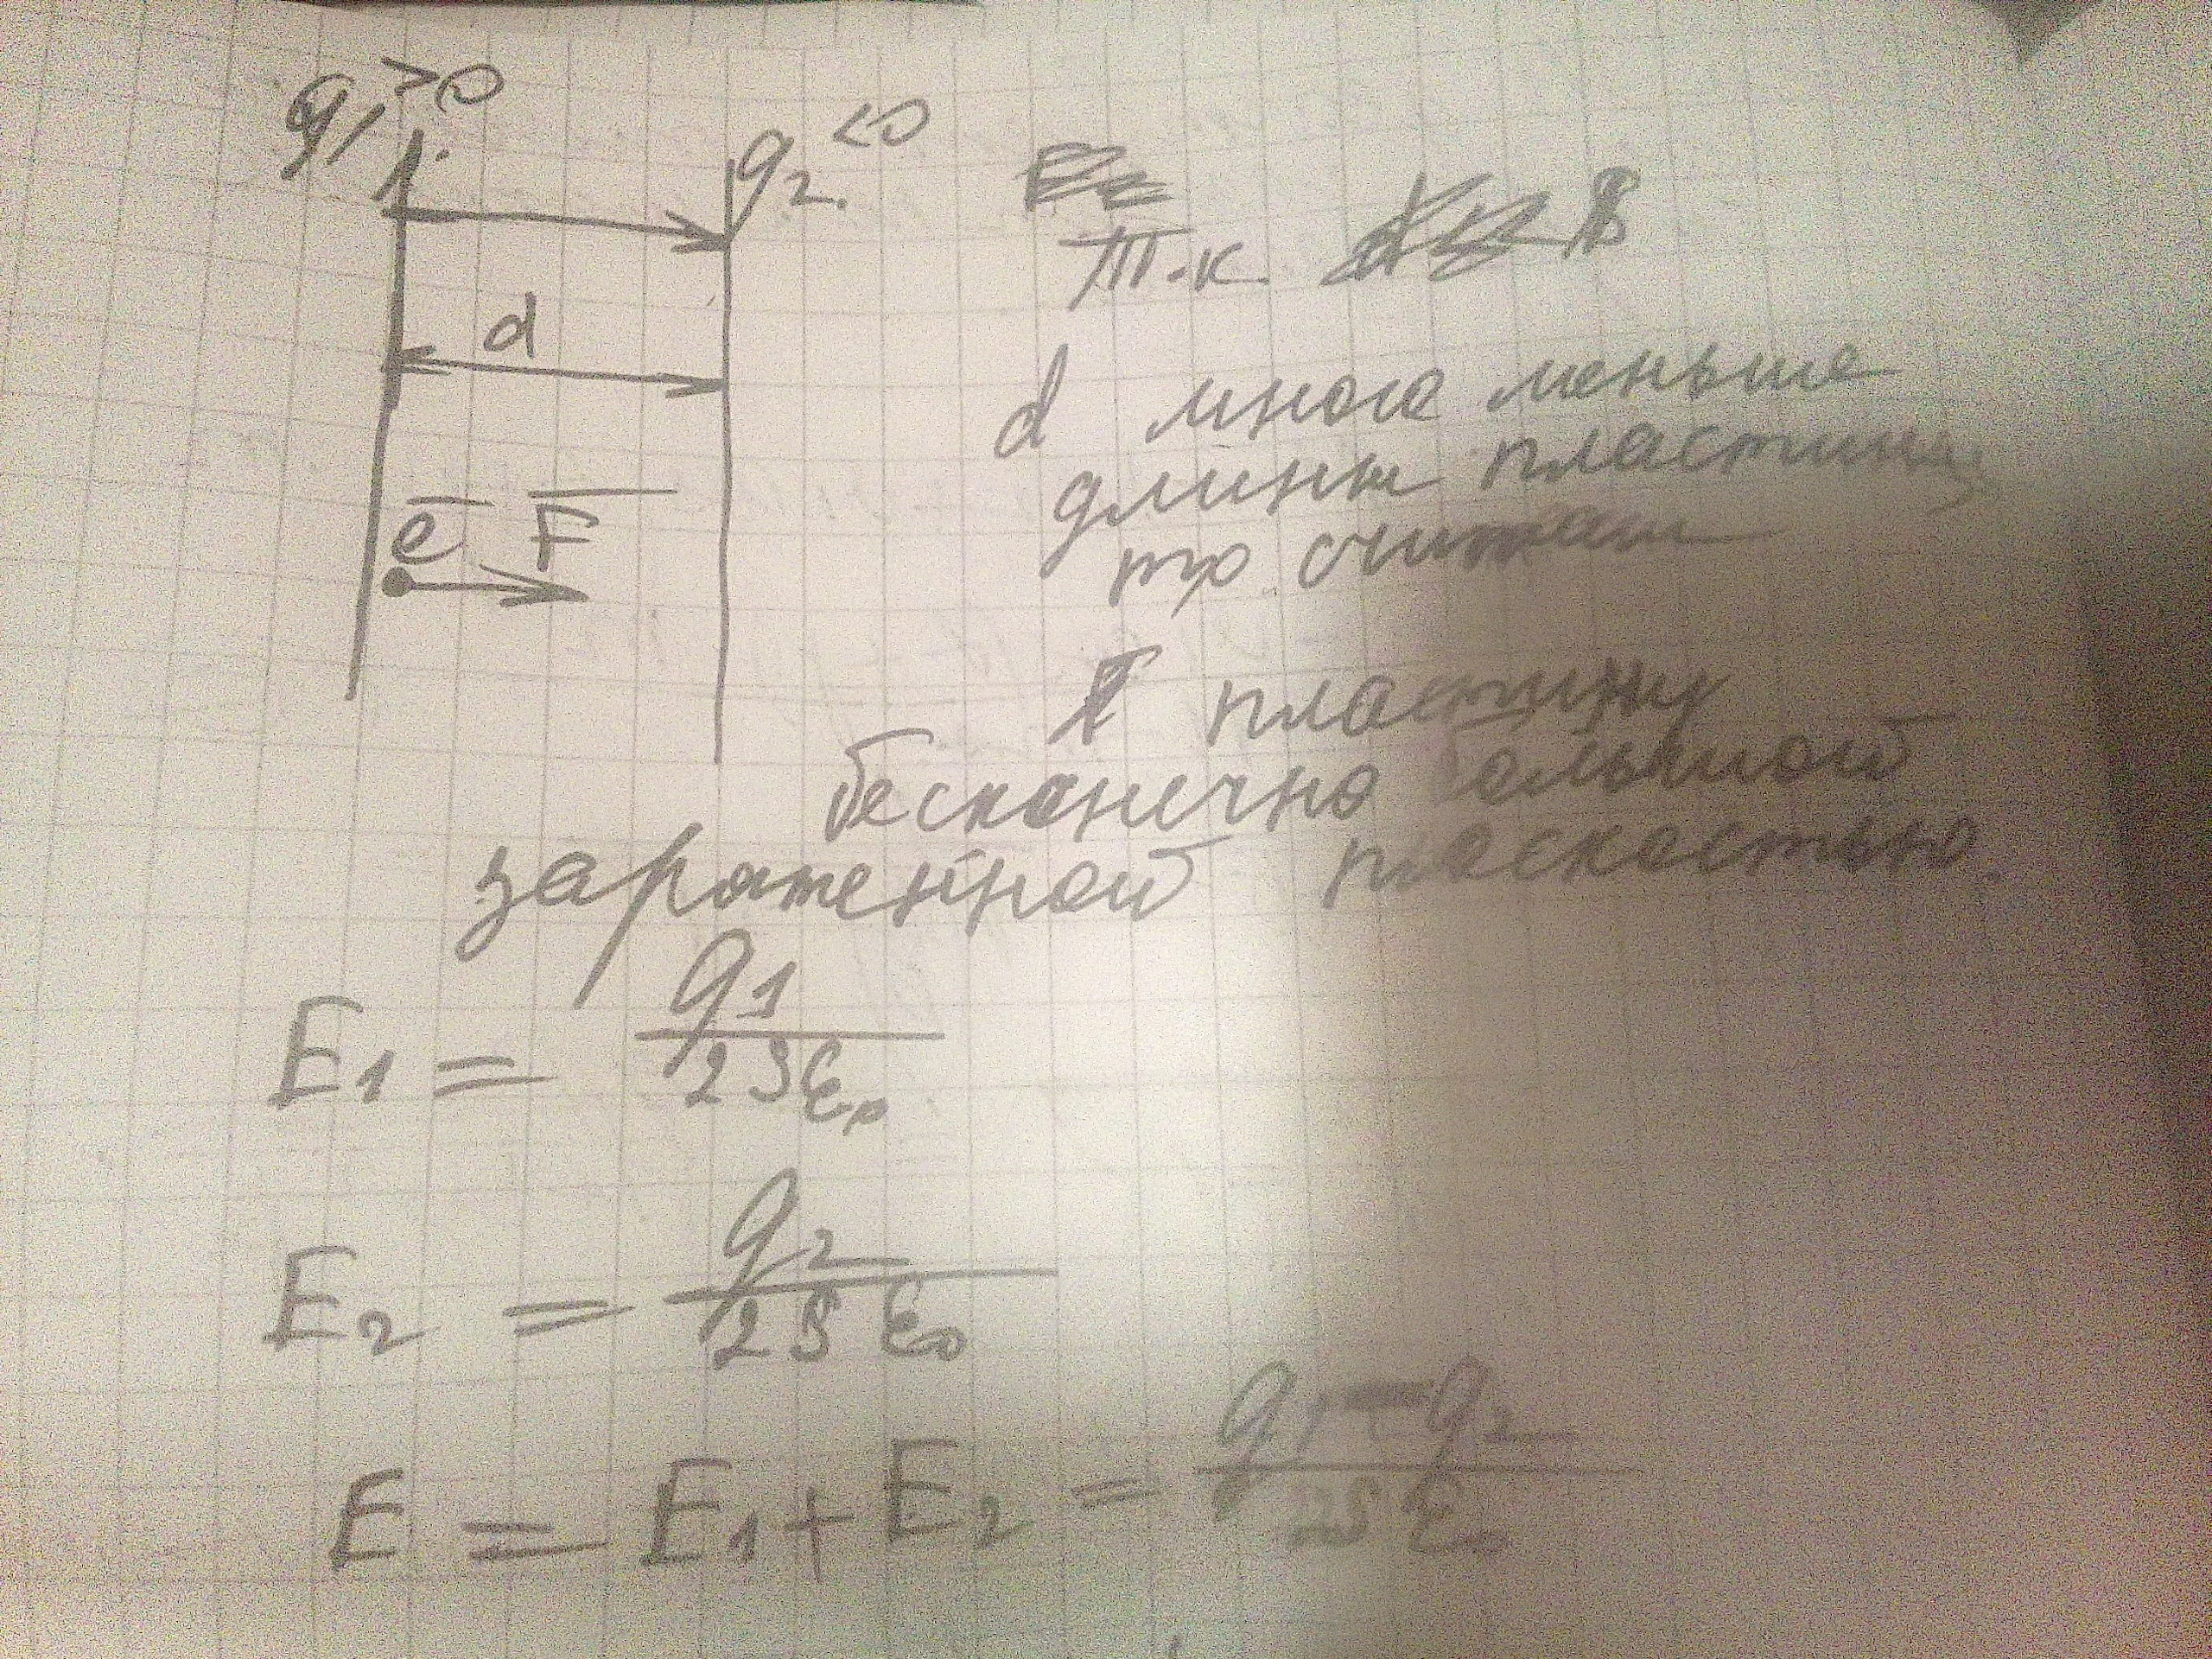 q₁>0
q₂<0
1.
d
e̅ F̅
т.к.
d много меньше
длины пластины
то считаем
пластину
бесконечно большой
заряженной плоскостью.
E₁ = q₁/2Sε₀
E₂ = q₂/2Sε₀
E = E₁ + E₂ = q₁-q₂/2Sε₀